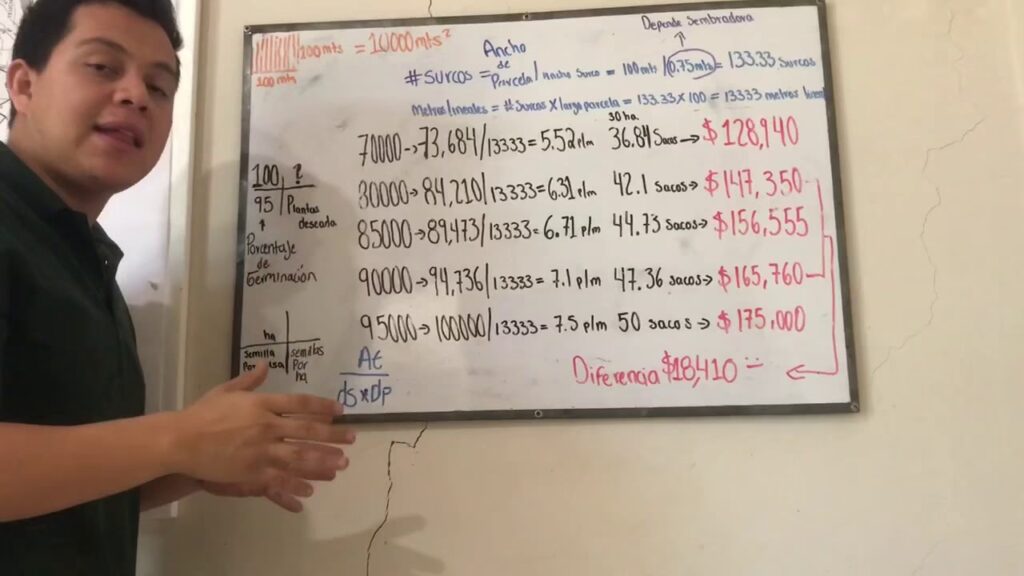 100mts = 10000mts²
100 mts
Depende Sembradora
#Surcos = Ancho de Parcela / Ancho Surco = 100mts / 0.75mts = 133.33 Surcos
Metros lineales = # Surcos x largo parcela = 133.33 x 100 = 13333 metros
30 ha.
70000 → 73,684/13333 = 5.52 plm 36.84 Sacos → $128,940
80000 → 84,210/13333 = 6.31 plm 42.1 Sacos → $147,350
85000 → 89,473/13333 = 6.71 plm 44.73 Sacos → $156,555
90000 → 94,736/13333 = 7.1 plm 47.36 sacos → $165,760
95000 → 100000/13333 = 7.5 plm 50 sacos → $175,000
Diferencia $18,410
100 ?
95 Plantas deseada
Porcentaje
de
Germinación
ha
Semilla semillas
Por
ha
At
ds x dp